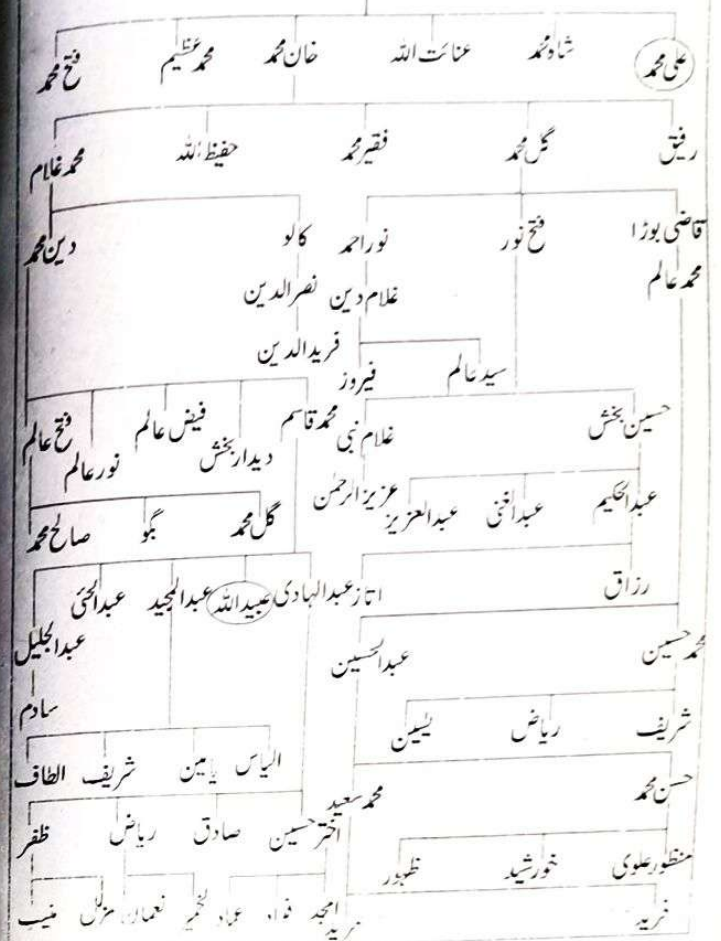 علی محمد شاہ محمد عنائت اللہ خان محمد محمد عظیم فتح محمد
رفیق گل محمد فقیر محمد حفیظ اللہ محمد غلام
قاضی بوڑا فتح نور نور احمد کالو دین محمد
محمد عالم غلام دین نصر الدین
سید عالم فیروز فرید الدین
حسین بخش غلام نبی محمد قاسم دیدار بخش فیض عالم نور عالم فتح عالم
عبدالحکیم عبدالغنی عبدالعزیز عزیز الرحمٰن گل محمد صالح محمد
رزاق عبدالہادی عبید اللہ عبدالمجید عبدالحئی عبدالجلیل
محمد حسین عبدالحسین سادم
شریف ریاض یٰسین الیاس یامین شریف الطاف
حسن محمد محمد سعید اختر حسین صادق ریاض ظفر
منظور علوی خورشید ظہور
فرید فرید امجد فواد عماد نعمان مزمل منیب